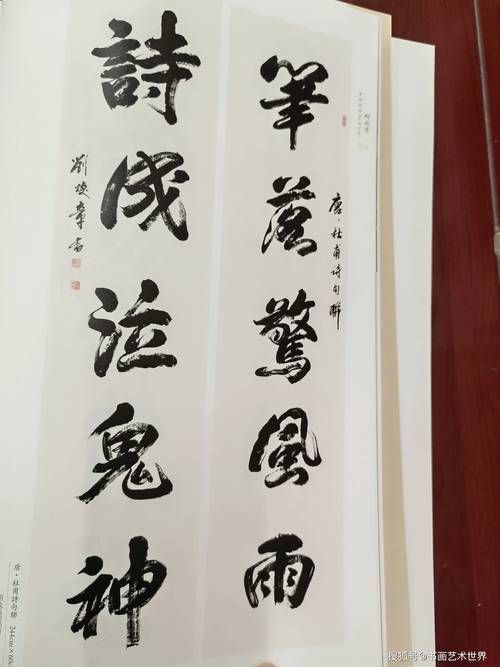 筆落驚風雨
唐·杜甫詩句聯
詩成泣鬼神
唐·杜甫詩句聯 244cm×60
搜狐号@书画艺术世界